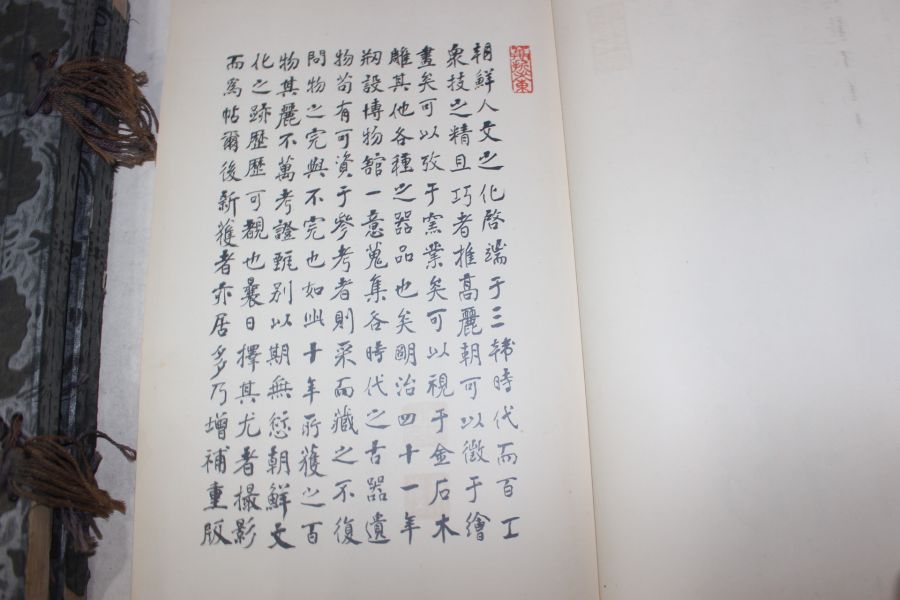 朝鮮人文之化啓端于三韓時代而百工
衆技之精且巧者推高麗朝可以徵于繪
畫矣可以攷于窯業矣可以視于金石木
雕其他各種之器品也矣明治四十一年
刱設博物館一意蒐集各時代之古器遺
物苟有可資于參考者則采而藏之不復
問物之完與不完也如此十年所獲之百
物其麗不萬考證甄別以期無愆朝鮮文
化之跡歷歷可觀也曩日擇其尤者撮影
而爲帖爾後新獲者亦居多乃增補重版